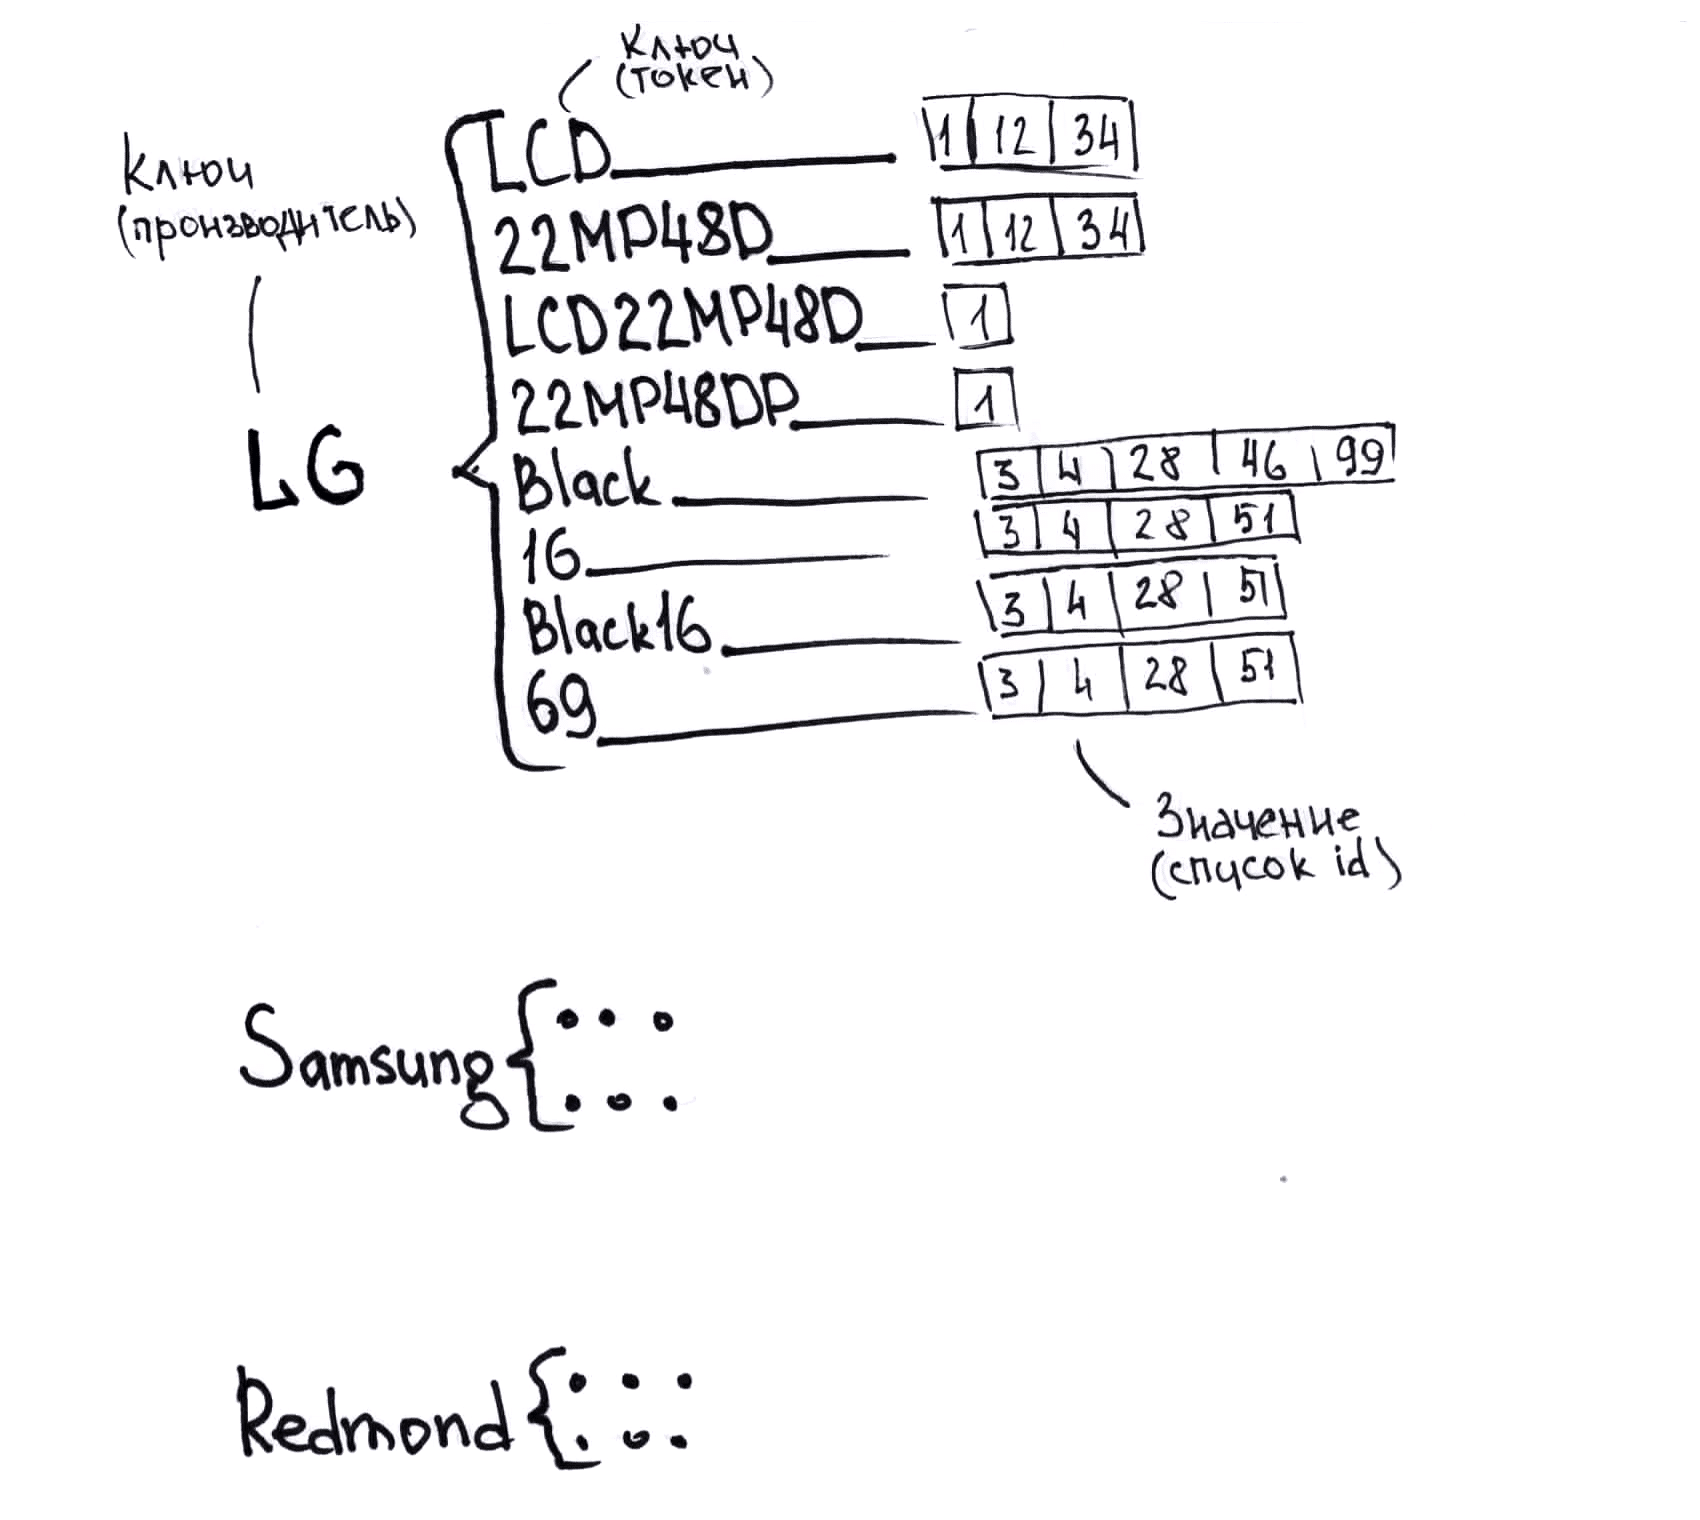 Ключ
(токен)
Ключ
(производитель)
LG
LCD 1 12 34
22MP48D 1 12 34
LCD22MP48D 1
22MP48DP 1
Black 3 4 28 46 99
16 3 4 28 51
Black16 3 4 28 51
69 3 4 28 51
Значение
(список id)
Samsung { . . .
. . .
Redmond { . . .
. . .